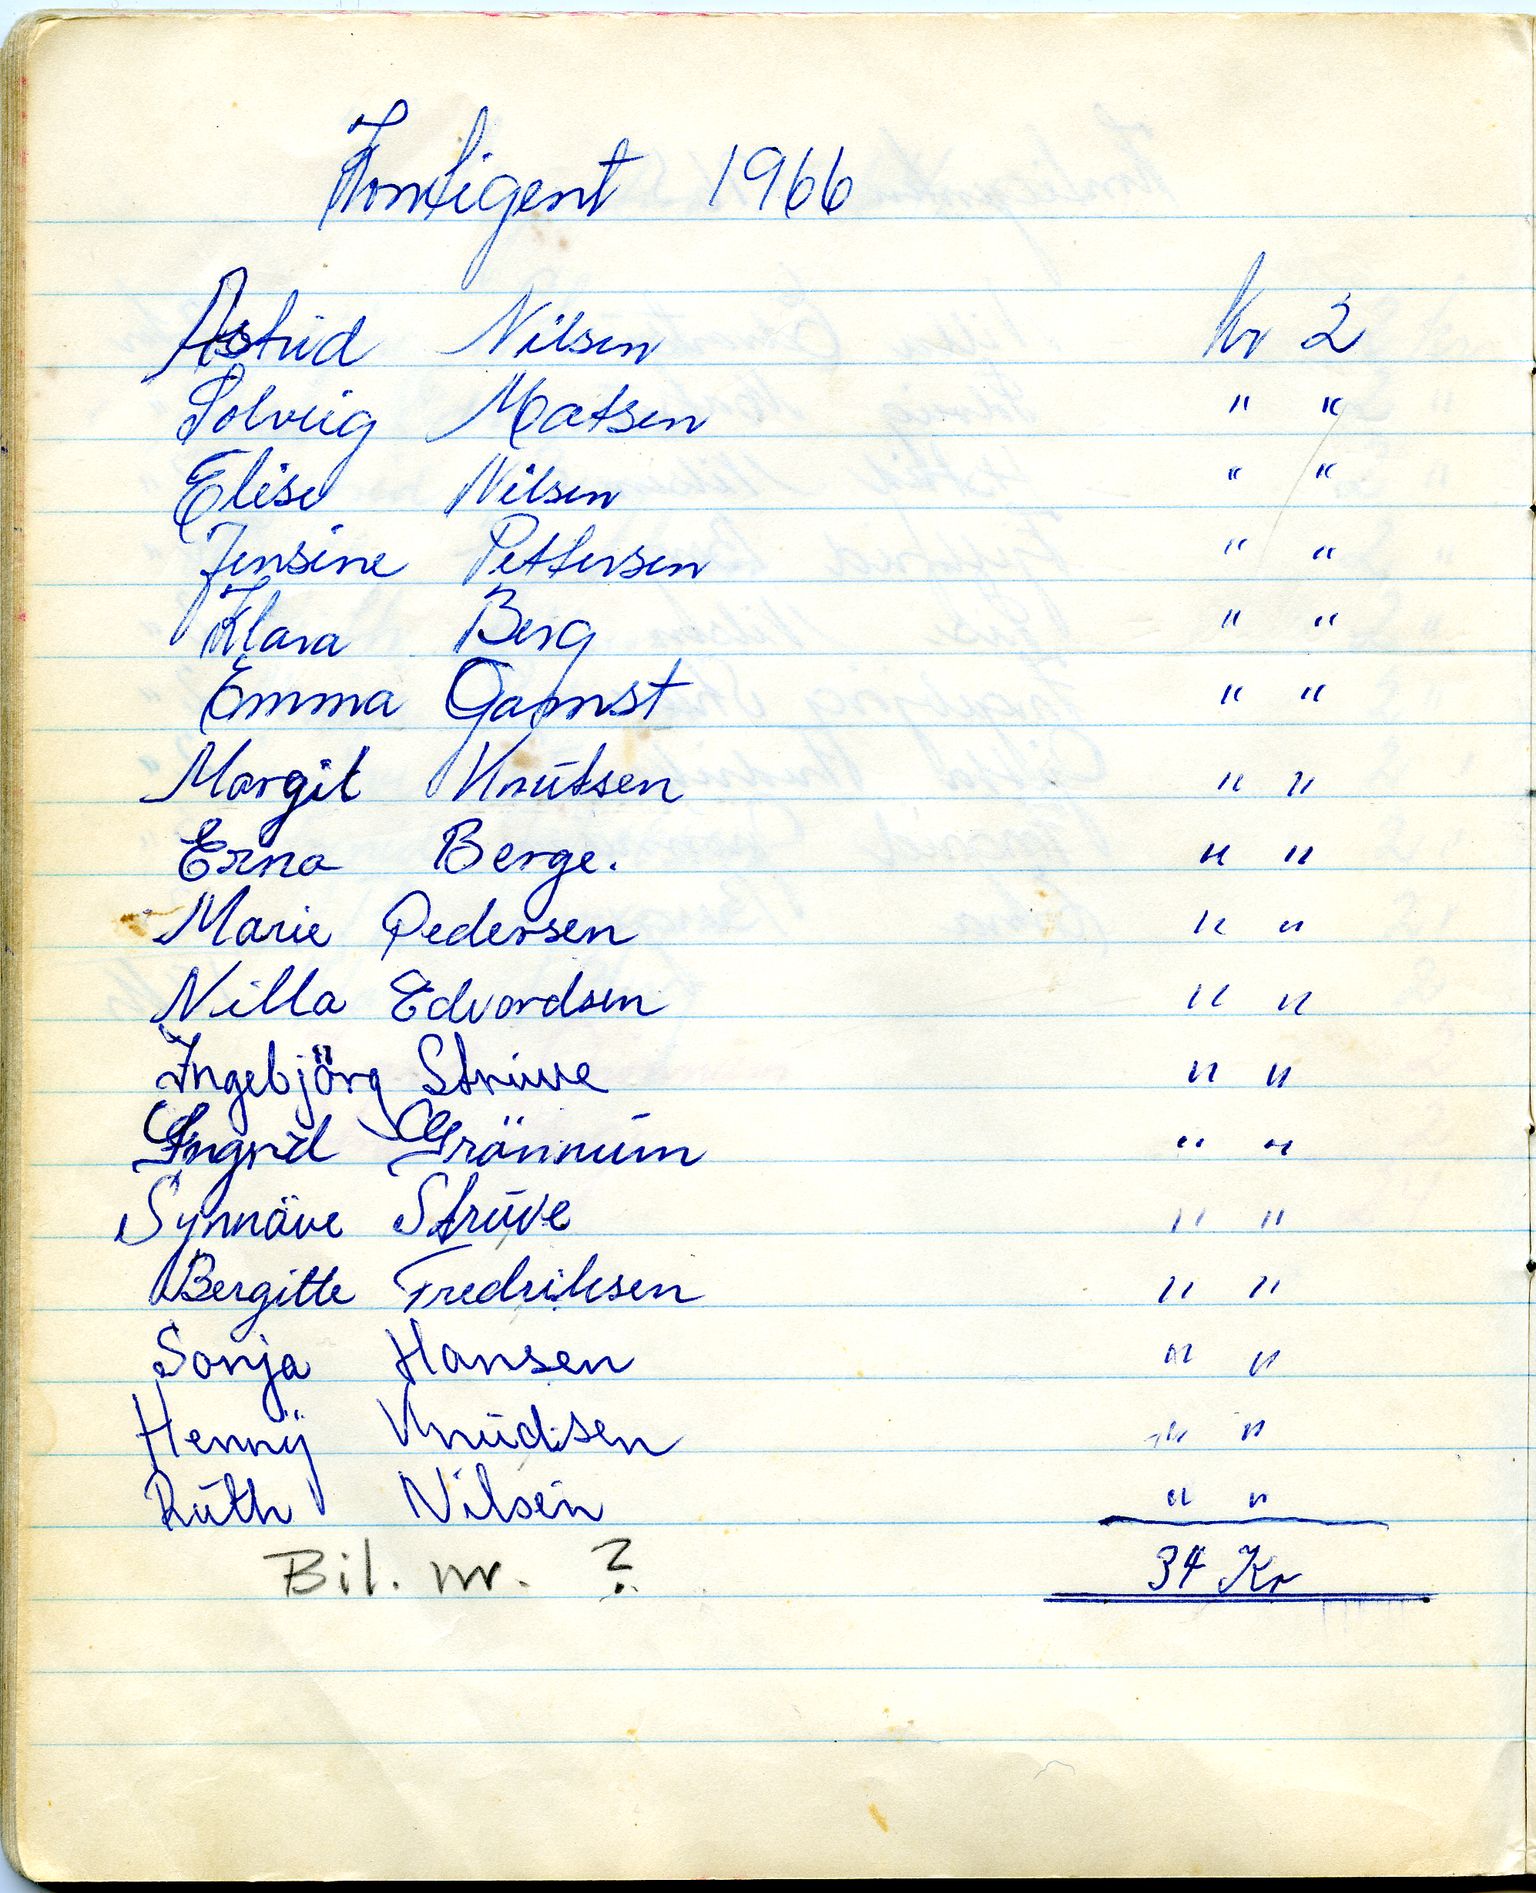 Kontigent 1966
Astrid Nilsen Kr 2
Solveig Matsen " "
Elise Nilsen " "
Jensine Pettersen " "
Klara Berg " "
Emma Gamst " "
Margit Knutsen " "
Erna Berge. " "
Marie Pedersen " "
Nilla Edvardsen " "
Ingebjörg Struve " "
Ingrid Grännum " "
Synnäve Struve " "
Bergitte Fredriksen " "
Sonja Hansen " "
Henny Knudsen " "
Ruth Nilsen " "
Bil. nr. ? 34 Kr